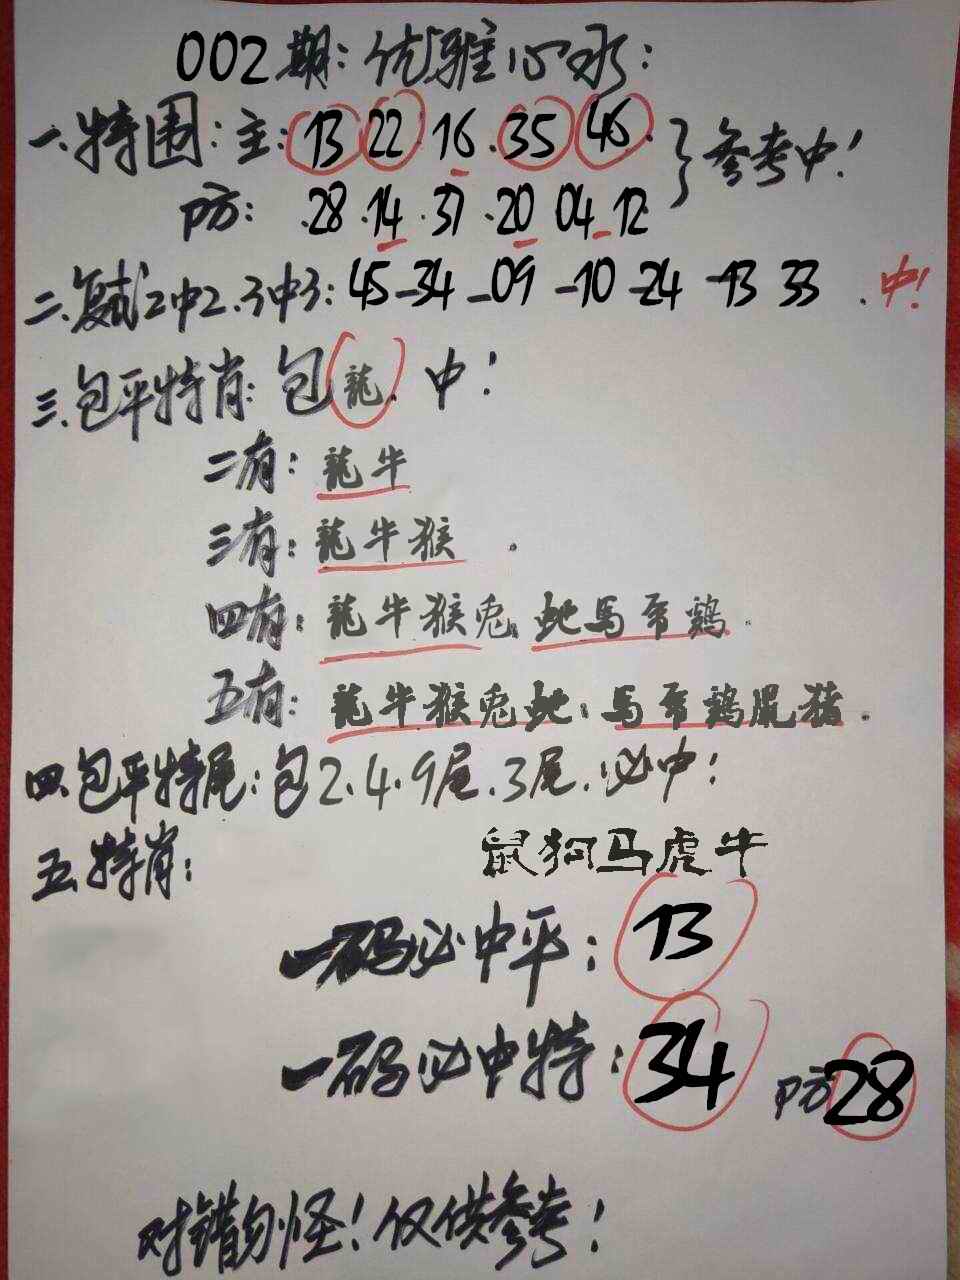 002期:优雅心水:
一.特围:主:13 22 16.35 46. 参考中!
防: .28 .14 .37 .20 04 12.
二.复试2中2.3中3:45-34-09-10-24-13 33.中!
三.包平特肖:包龍.中!
二有:龍牛
三有:龍牛猴.
四有:龍牛猴兎.蛇馬羊鷄.
五有:龍牛猴兎蛇.馬羊鷄鼠猪.
四.包平特尾:包2.4.9尾.3尾.必中!
五.特肖: 鼠狗马虎牛
一码必中平:13
一码必中特:34 防28
对错勿怪!仅供参考!